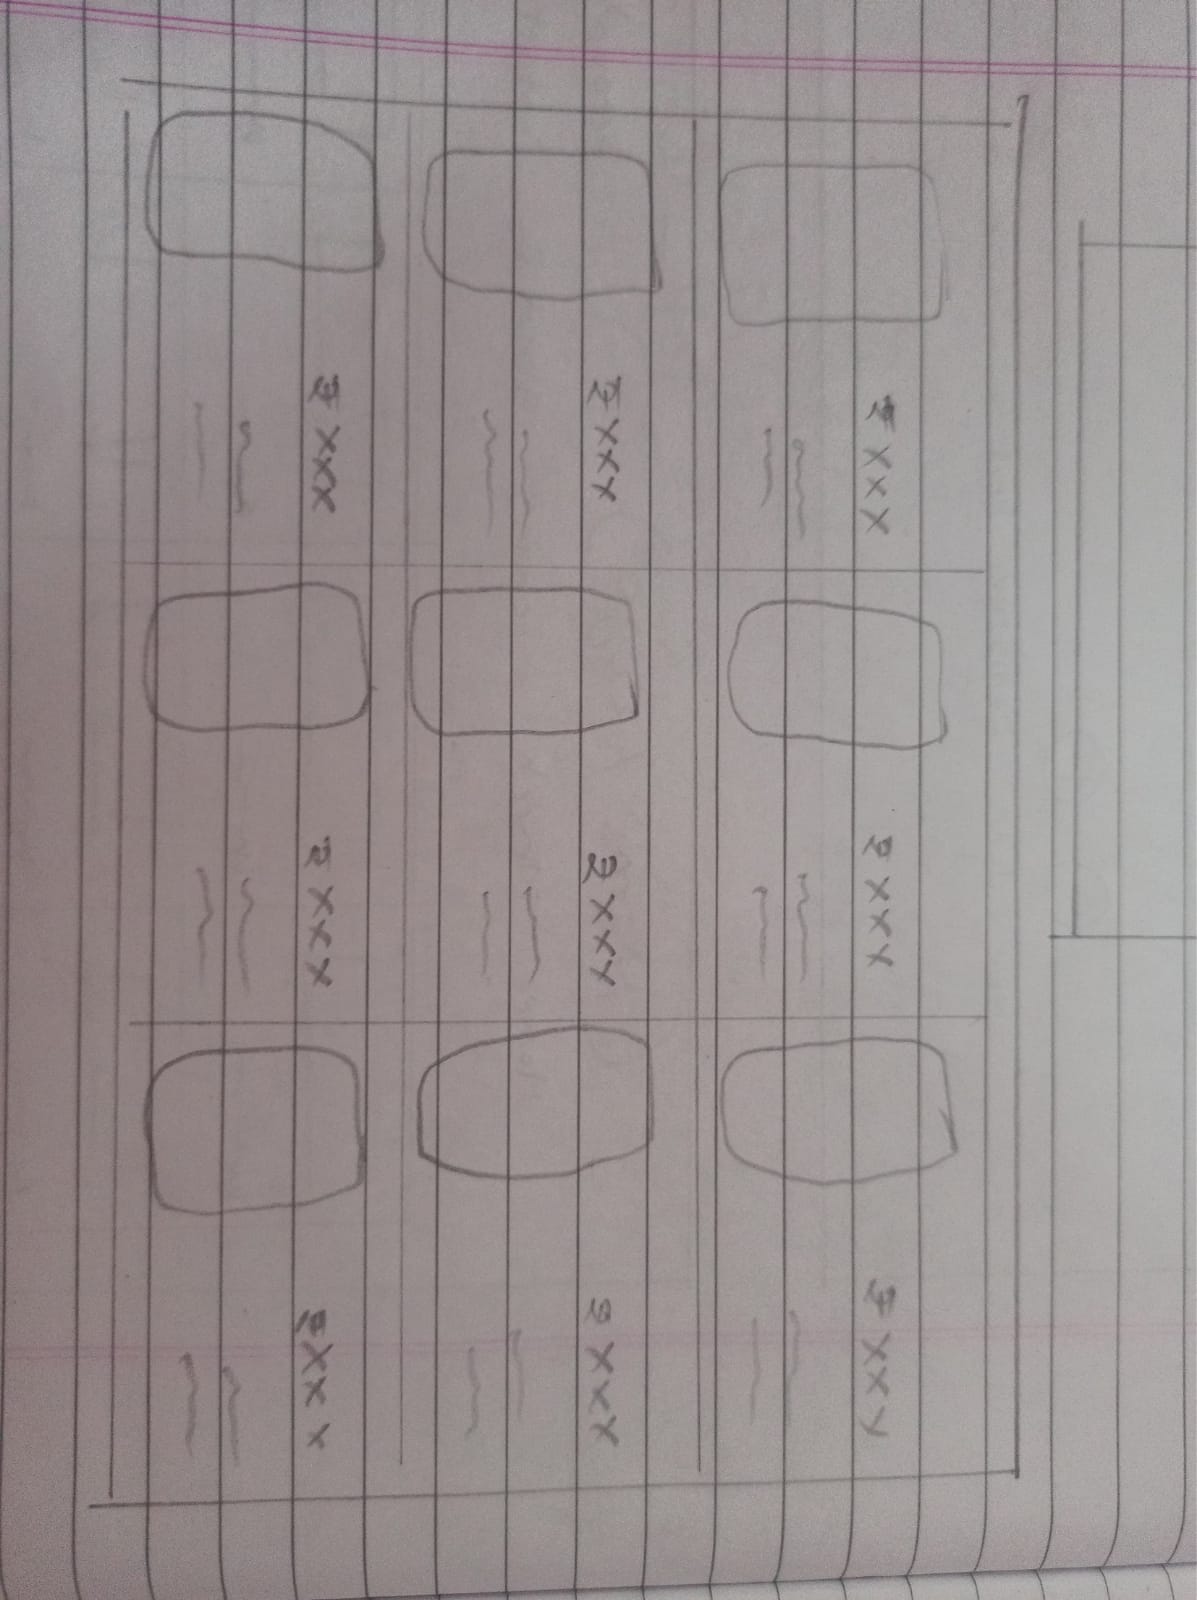 ₹ XXX ₹ XXX ₹ XXX
₹ XXX ₹ XXX ₹ XXX
₹ XXX ₹ XXX ₹ XXX